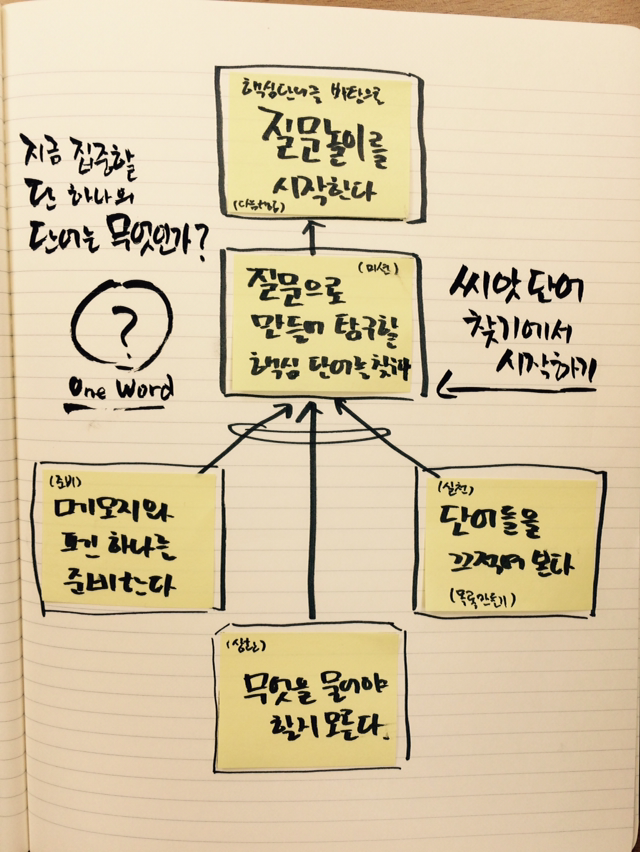 핵심단어를 바탕으로
질문놀이를
시작한다
지금 집중할
단 하나의
단어는 무엇인가?
?
One Word
(미션)
질문으로
만들어 탐구할
핵심 단어를 찾다
씨앗 단어
찾기에서
시작하기
(준비)
메모지와
펜 하나를
준비한다
(실천)
단어들을
끄적여 본다
(목록만들기)
(상황)
무엇을 물어야
할지 모른다.